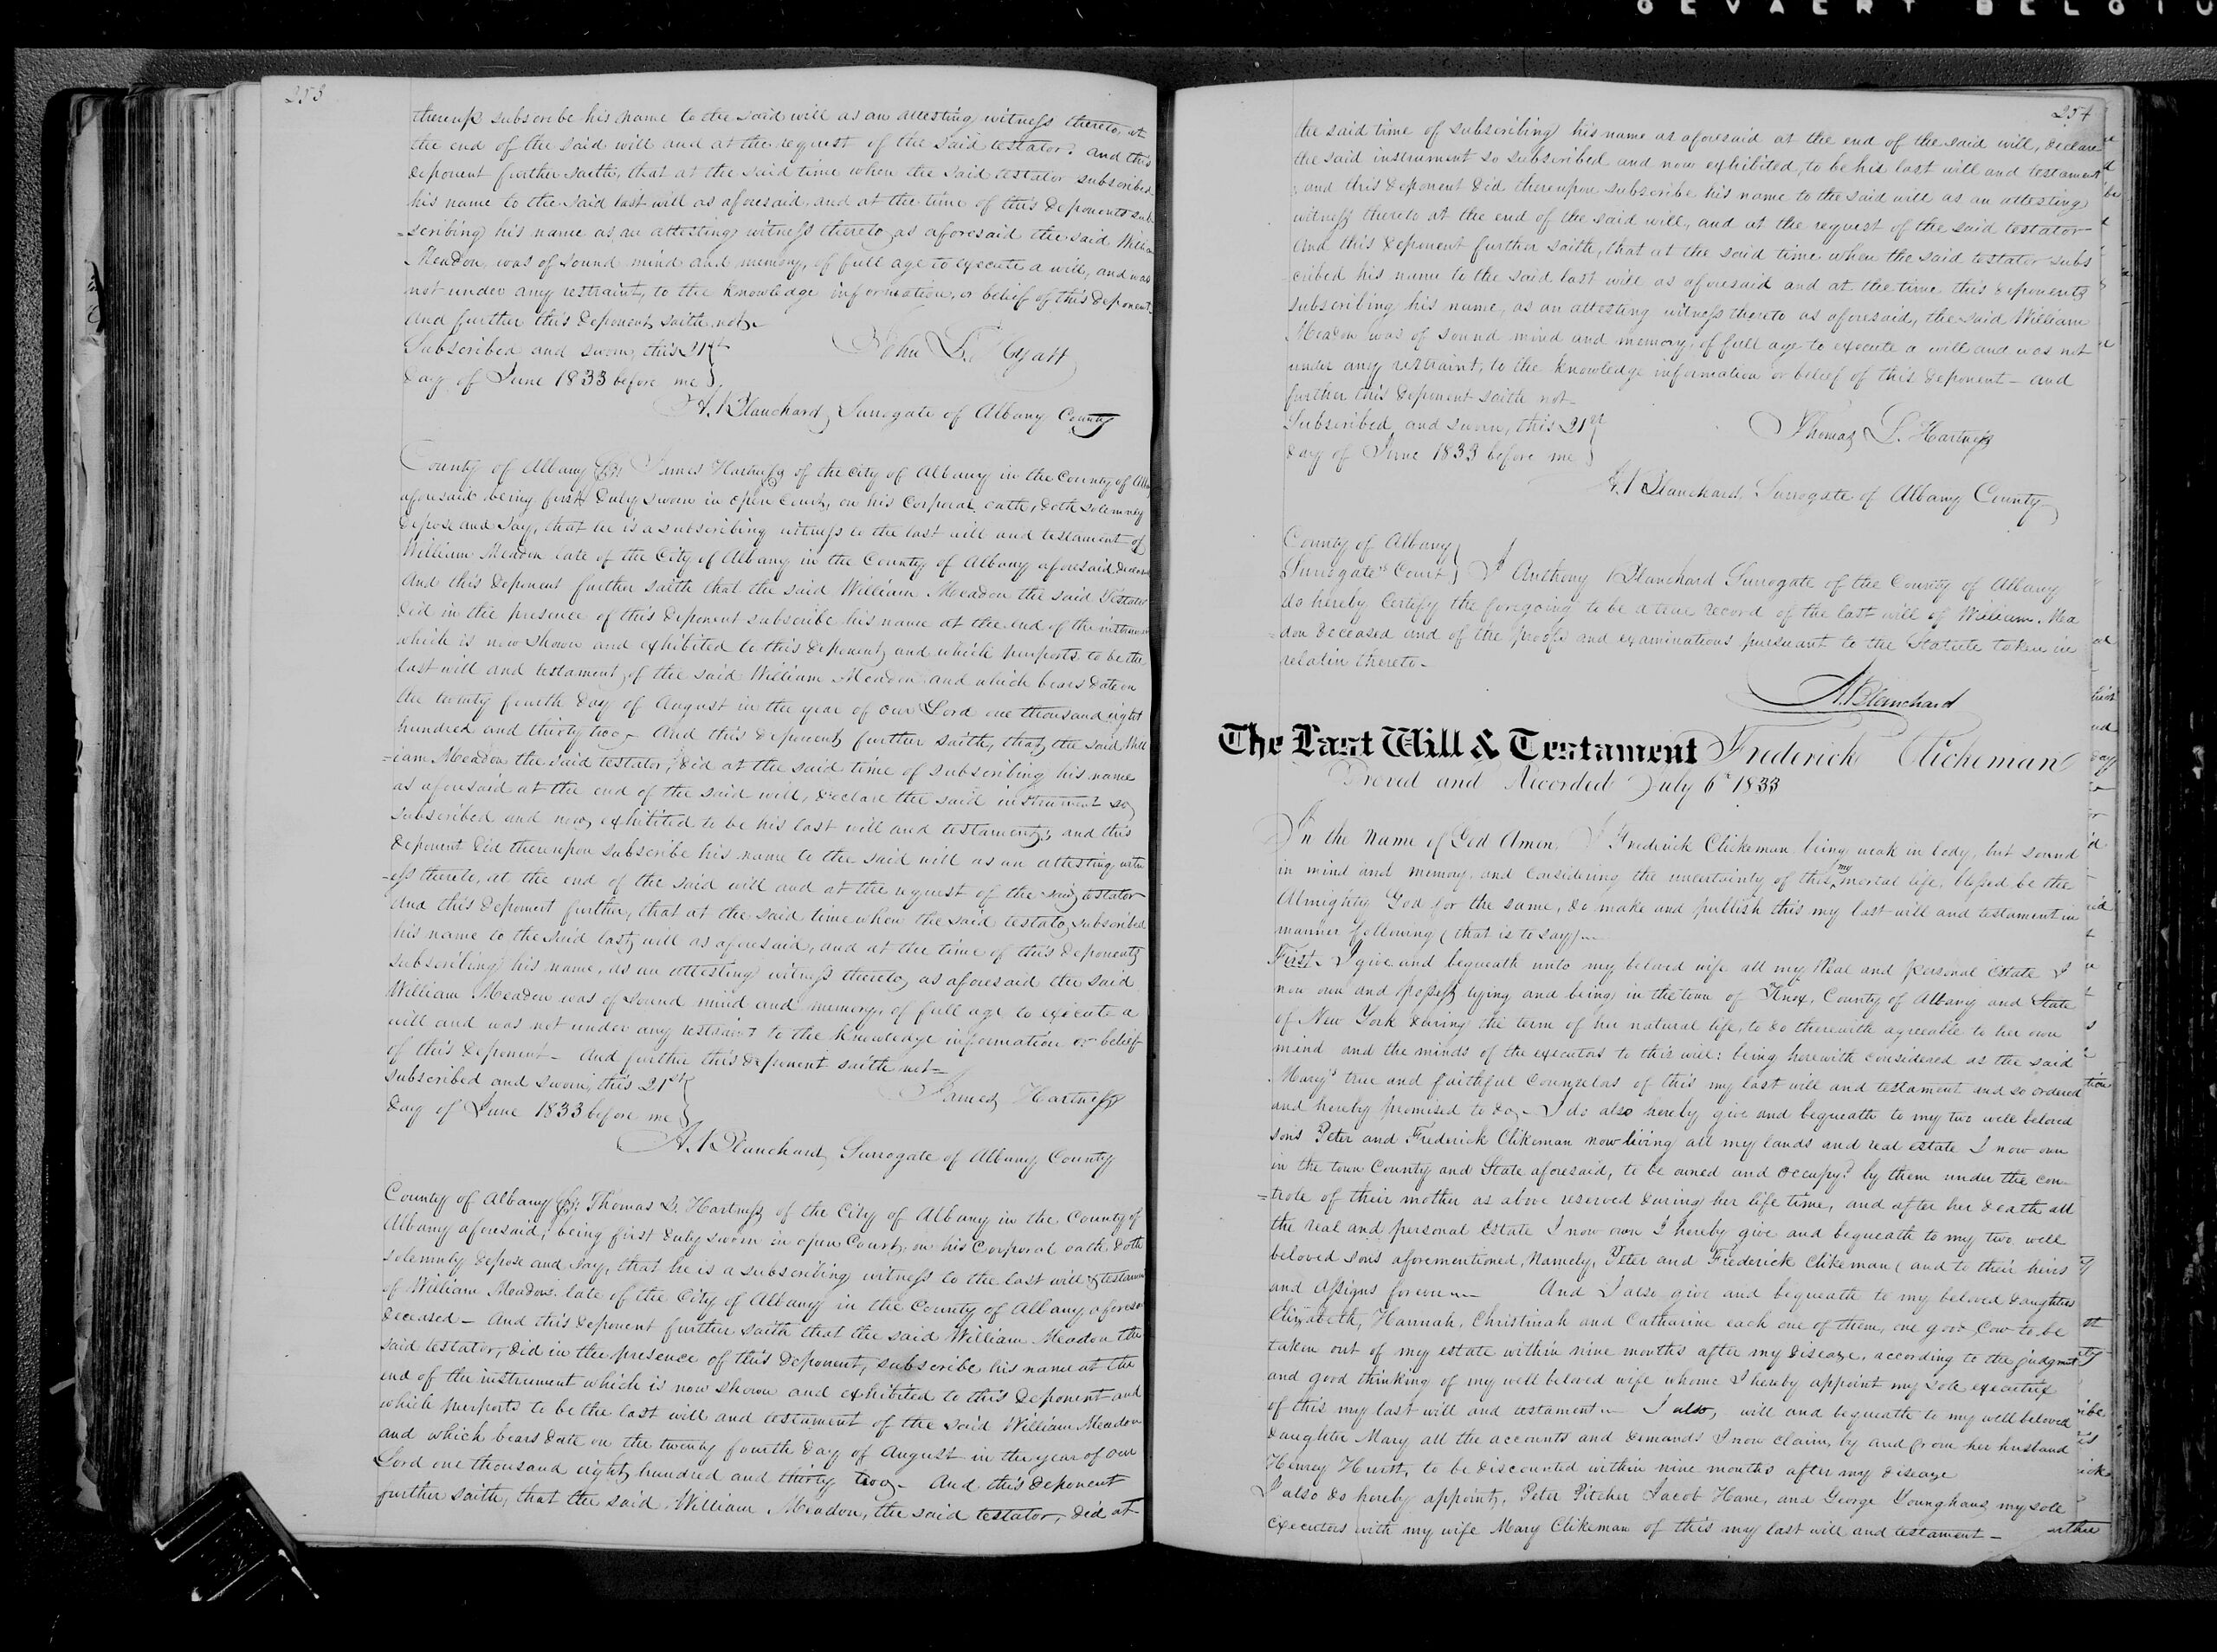 GEVAERT BELGIU
253
thereup subscribe his name to the said will as an attesting witness thereto, at
the end of the said will and at the request of the said testator. and this
deponent further saith, that at the said time when the said testator subscribed
his name to the said last will as aforesaid, and at the time of this deponents sub-
=scribing his name as an attesting witness thereto, as aforesaid the said William
Meadon, was of sound mind and memory, of full age to execute a will, and was
not under any restraint, to the knowledge information, or belief of this deponent.
And further this deponent saith not.
Subscribed and sworn, this 21st
day of June 1833 before me
John L. Hyatt
A. Blanchard, Surrogate of Albany County
County of Albany Ss: James Hartness of the city of Albany in the County of Albany
aforesaid being first duly sworn in open Court, on his Corporal oath, doth solemnly
depose and say, that he is a subscribing witness to the last will and testament of
William Meadon late of the City of Albany in the County of Albany aforesaid, deceased
And this deponent further saith that the said William Meadon the said testator
did in the presence of this deponent subscribe his name at the end of the instrument
which is now shown and exhibited to this deponent, and which purports to be the
last will and testament, of the said William Meadon and which bears date on
the twenty fourth day of August in the year of our Lord one thousand eight
hundred and thirty two,- And this deponent, further saith, that, the said Will
=iam Meadon the said testator, did at the said time of subscribing his name
as aforesaid at the end of the said will, declare the said instrument so,
subscribed and now, exhibited to be his last will and testament; and this
deponent did thereupon subscribe his name to the said will as an attesting witn
=ess thereto, at the end of the said will and at the request of the said testator
And this deponent further, that at the said time when the said testator subscribed
his name to the said last, will as aforesaid, and at the time of this deponents
subscribing his name, as an attesting witness thereto, as aforesaid the said
William Meadon was of sound mind and memory, of full age to execute a
will and was not under any restraint to the knowledge information or belief
of this deponent - And further this deponent saith not-
subscribed and sworn, this 21st
day of June 1833 before me
James Hartness
A. Blanchard, Surrogate of Albany County
County of Albany Ss: Thomas L. Hartness of the City of Albany in the County of
Albany aforesaid, being first duly sworn in open Court, on his Corporal oath, doth
solemnly depose and say, that he is a subscribing witness to the last will & testament
of William Meadon, late of the City of Albany in the County of Albany aforesaid
deceased - And this deponent further saith that the said William Meadon the
said testator, did in the presence of this deponent, subscribe his name at the
end of the instrument which is now shown and exhibited to this deponent and
which purports to be the last will and testament of the said William Meadon
and which bears date on the twenty fourth day of August in the year of our
Lord one thousand eight hundred and thirty two,- And this deponent
further saith, that the said William Meadon, the said testator, did at-
254
the said time of subscribing his name as aforesaid at the end of the said will, declare
the said instrument so subscribed and now exhibited, to be his last will and testament
; and this deponent did thereupon subscribe his name to the said will as an attesting
witness thereto at the end of the said will, and at the request of the said testator-
And this deponent further saith, that at the said time when the said testator subs
cribed his name to the said last will as aforesaid and at the time this deponents
subscribing his name, as an attesting witness thereto as aforesaid, the said William
Meadon was of sound mind and memory, of full age to execute a will and was not
under any restraint, to the knowledge information or belief of this deponent - and
further this deponent saith not-
Subscribed and sworn, this 21st
day of June 1833 before me
Thomas L. Hartness
A. Blanchard, Surrogate of Albany County
County of Albany
Surrogate's Court
I Anthony Blanchard Surrogate of the County of Albany
do hereby Certify the foregoing to be a true record of the last will of William. Mea
=don deceased and of the proofs and examinations pursuant to the Statute taken in
relatin thereto-
A. Blanchard
The Last Will & Testament Frederick Clickeman
Proved and Recorded July 6th 1833
In the Name of God Amen. I Frederick Clickeman, being weak in body, but sound
in mind and memory, and considering the uncertainty of this my mortal life, blessed be the
Almighty God for the same, do make and publish this my last will and testament in
manner following (that is to say)
First. I give and bequeath unto my beloved wife all my Real and personal Estate I
now own and possess lying and being in the town of Knox, County of Albany and State
of New York during the term of her natural life, to do therewith agreeable to her own
mind and the minds of the executors to this will: being herewith considered as the said
Mary's true and faithful Counselors of this my last will and testament and so ordered
and hereby promised to do,- I do also hereby give and bequeath to my two well beloved
sons Peter and Frederick Clikeman now living all my lands and real estate I now own
in the town County and State aforesaid, to be owned and occupyd by them under the con-
=trole of their mother as above reserved during her life time, and after her death all
the real and personal Estate I now own I hereby give and bequeath to my two well
beloved sons aforementioned, Namely, Peter and Frederick Clikeman and to their heirs
and Assigns forever And I also give and bequeath to my beloved daughters
Elizabeth, Hannah, Christinah and Catharine each one of them, one good Cow to be
taken out of my estate within nine months after my disease, according to the judgment
and good thinking of my well beloved wife whome I hereby appoint my sole executrix
of this my last will and testament I also, will and bequeath to my well beloved
daughter Mary all the accounts and demands I now claim, by and from her husband
Henrey Hurst, to be discounted within nine months after my disease
I also do hereby appoint, Peter Pitcher Jacob Hane, and George Younghans, my sole
executors with my wife Mary Clikeman of this my last will and testament-